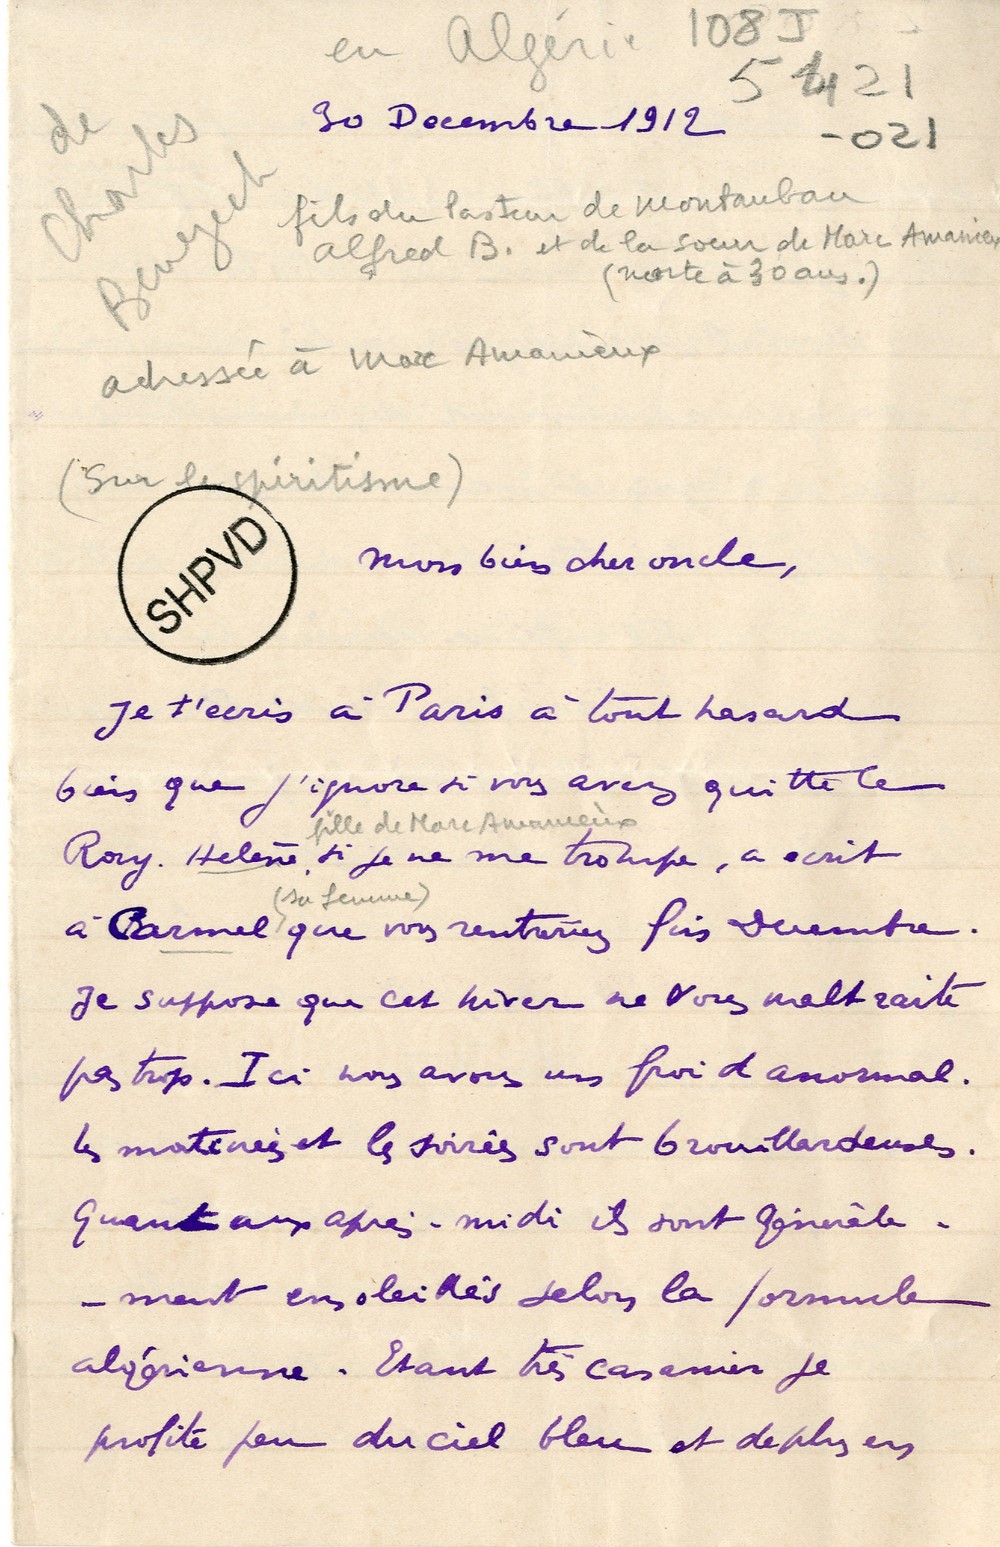 en Algérie
108 J
5 421
-021
30 Decembre 1912
de
Charles
Benezech
fils du Pasteur de Montauban
Alfred B. et de la soeur de Marc Amanieux
(morte à 30 ans.)
adressée à Marc Amanieux
(Sur le spiritisme)
SHPVD
Mon bien cher oncle,
Je t'ecris à Paris à tout hasard
bien que j'ignore si vous avez quitté le
fille de Marc Amanieux
Rory. Helène, si je ne me trompe, a ecrit
(sa femme)
à Carmel que vous rentreriez fin Decembre.
Je suppose que cet hiver ne vous maltraite
pas trop. Ici nous avons un froid anormal.
les matinées et les soirées sont brouillardeuses.
Quant aux après-midi ils sont générale-
-ment ensoleillés selon la formule
algérienne. Etant très casanier je
profite peu du ciel bleu et de plus en